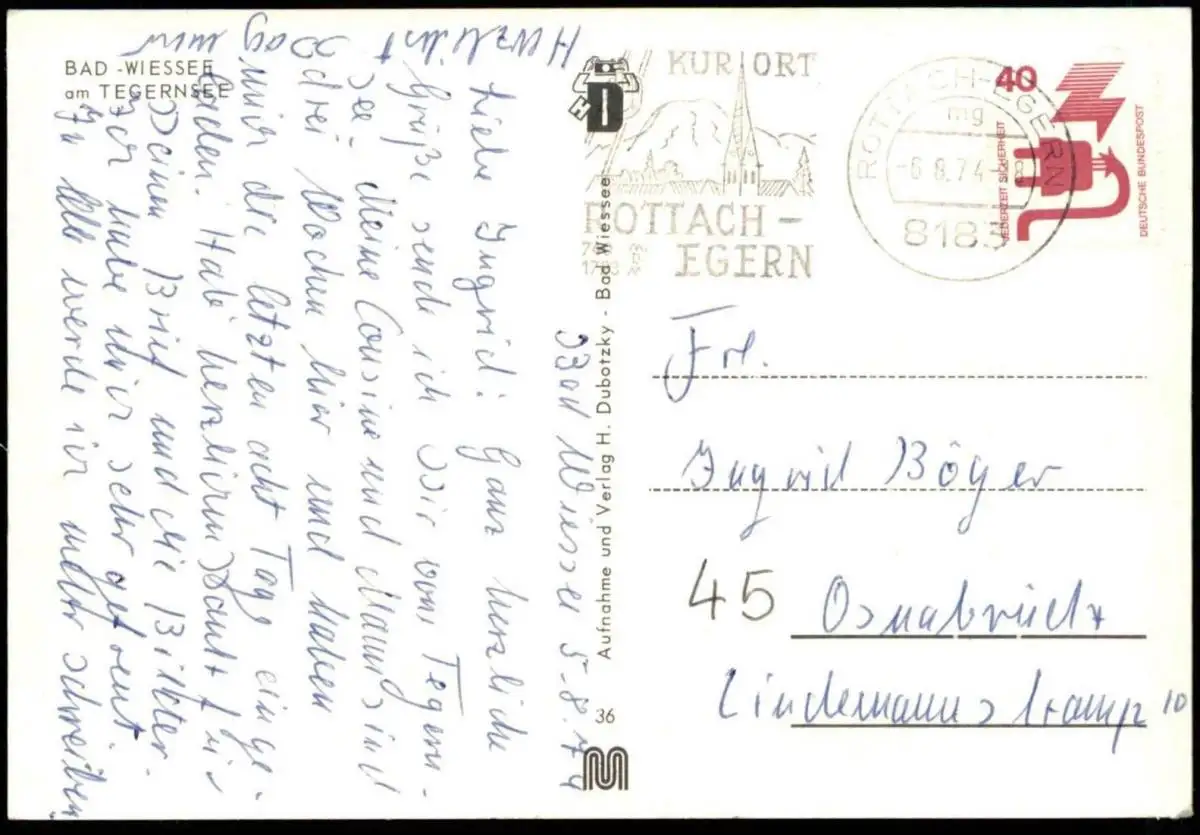 BAD - WIESSEE
am TEGERNSEE
Bad Wiessee 5.8.74
Liebe Ingrid! Ganz herzliche
Grüße sende ich Dir vom Tegern-
see. Meine Cousine und Mann sind
drei Wochen hier und haben
mich die letzten acht Tage einge-
laden. Hab herzlichen Dank für
Deinen Brief und die Bilder.
Ich habe mich sehr gefreut.
Zu Hause werde ich mehr schreiben
Herzlichst
Dagmar
Aufnahme und Verlag H. Dubotzky - Bad Wiessee
36
KURORT
ROTTACH-
EGERN
ROTTACH-EGERN
mg
-6.8.74-8
8183
40
JEDERZEIT SICHERHEIT
DEUTSCHE BUNDESPOST
Frl.
Ingrid Böger
45 Osnabrück
Lindemannskamp 10